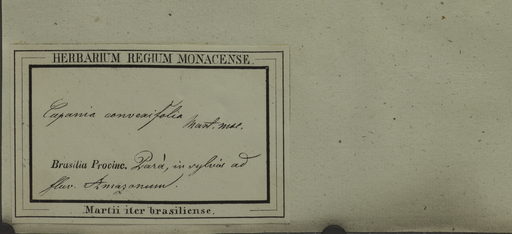 HERBARIUM REGIUM MONACENSE.
Cupania convexifolia
Mart. msc.
Brasilia Provinc. Pará, in sylvis ad
fluv. Amazonum.
Martii iter brasiliense.